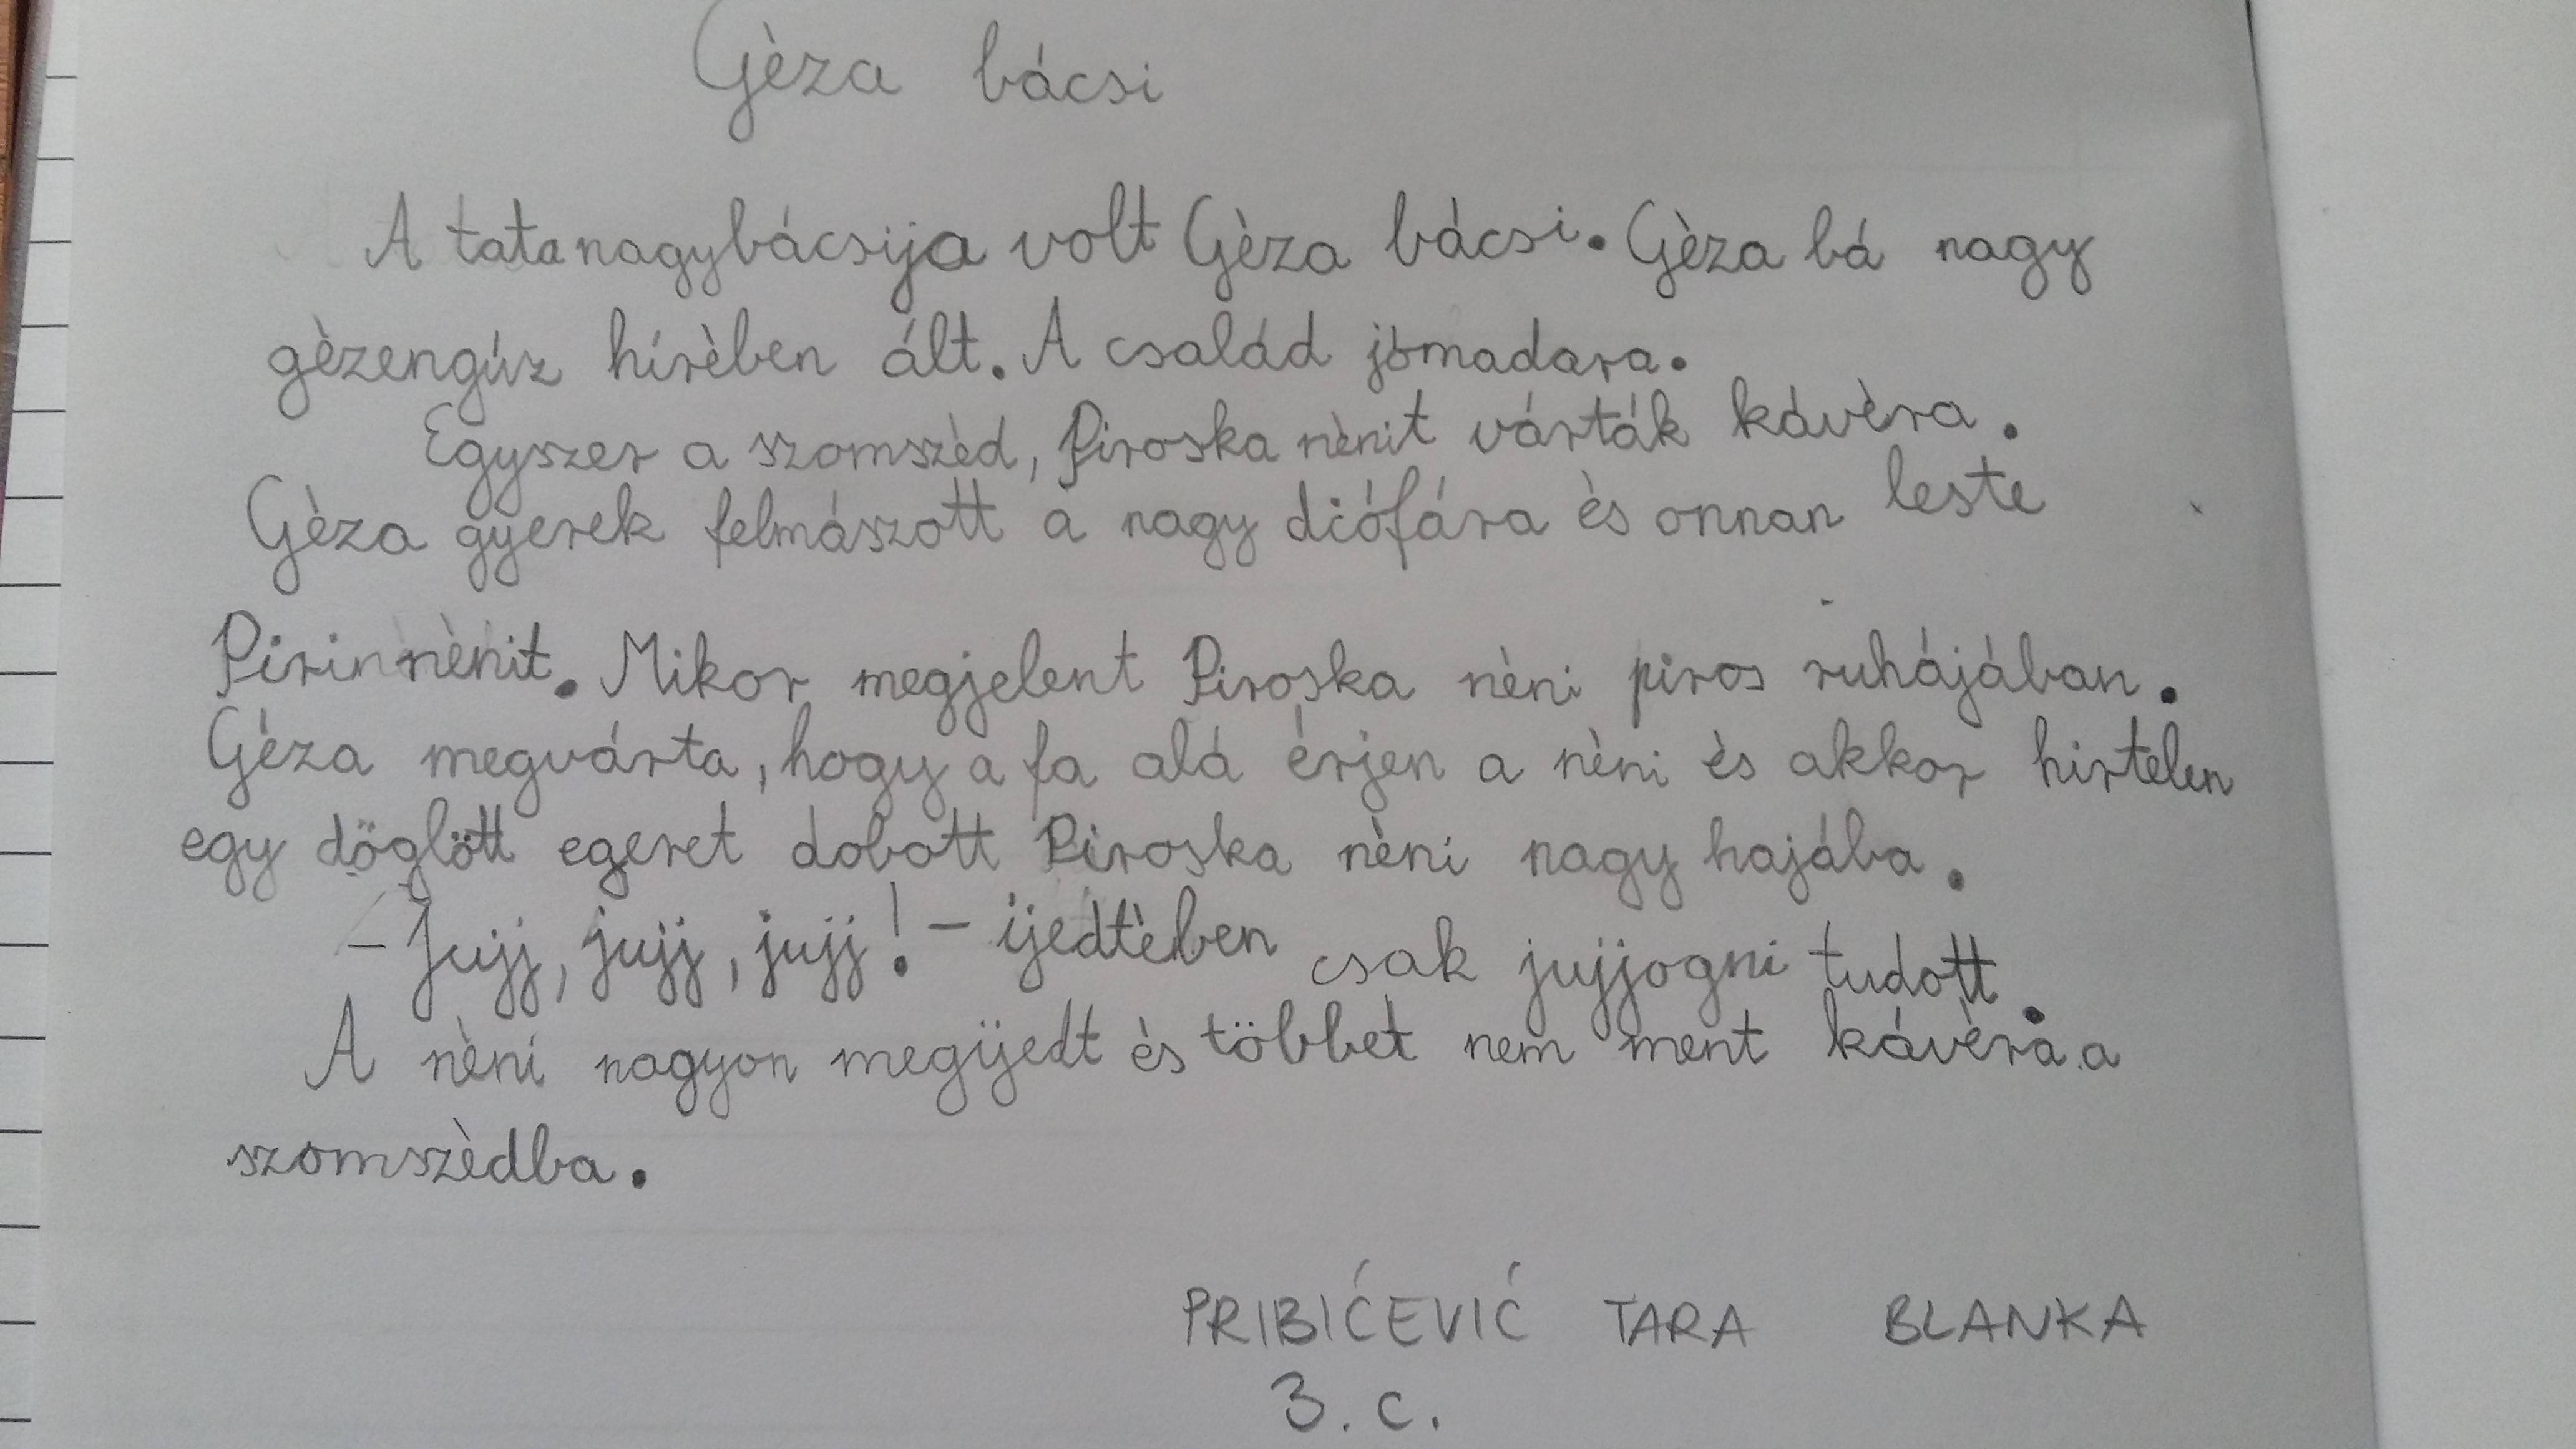 Gèza bácsi
A tata nagybácsija volt Gèza bácsi. Gèza bá nagy
gèzengúz hírèben ált. A család jómadara.
Egyszer a szomszèd, Piroska nènit várták kávèra.
Gèza gyerek felmászott a nagy diófára ès onnan leste
Pirin nènit. Mikor megjelent Piroska nèni piros ruhájában.
Gèza megvárta, hogy a fa alá érjen a nèni ès akkor hirtelen
egy döglött egeret dobott Piroska nèni nagy hajába.
- Jujj, jujj, jujj! - ijedtèben csak jujjogni tudott.
A nèni nagyon megijedt ès többet nem ment kávèra a
szomszèdba.
PRIBIĆEVIĆ TARA BLANKA
3. c.